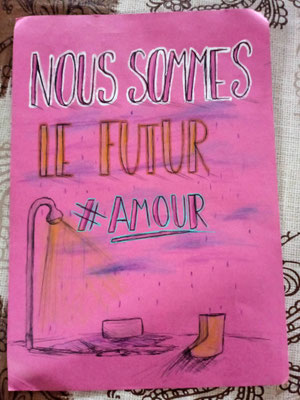 NOUS SOMMES
LE FUTUR
#AMOUR